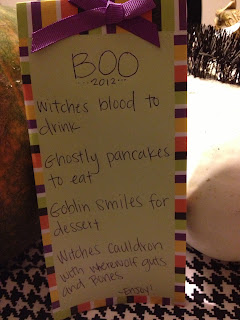 BOO
2012
Witches blood to
drink
Ghostly pancakes
to eat
Goblin smiles for
dessert
Witches cauldron
with werewolf guts
and bones
-ENJOY!